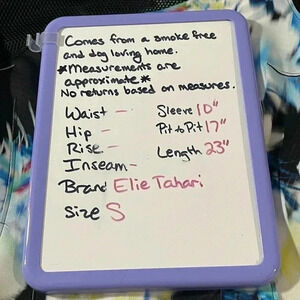 Comes from a smoke free
and dog loving home.
*Measurements are
approximate*
No returns based on measures.
Waist -
Hip -
Rise -
Inseam -
Sleeve 10"
Pit to Pit 17"
Length 23"
Brand Elie Tahari
Size S